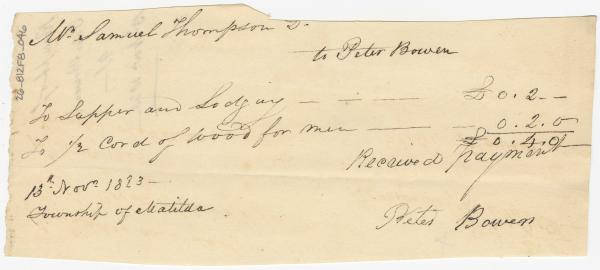 Mr. Samuel Thompson Dr.
to Peter Bowen
To Supper and Lodging — — — £ 0. 2. —
To 1/2 Cord of Wood for men — — 0. 2. 0
£ 0. 4. 0
Received Payment
13th Novr 1823 —
Township of Matilda
Peter Bowen
26-B12FB-046